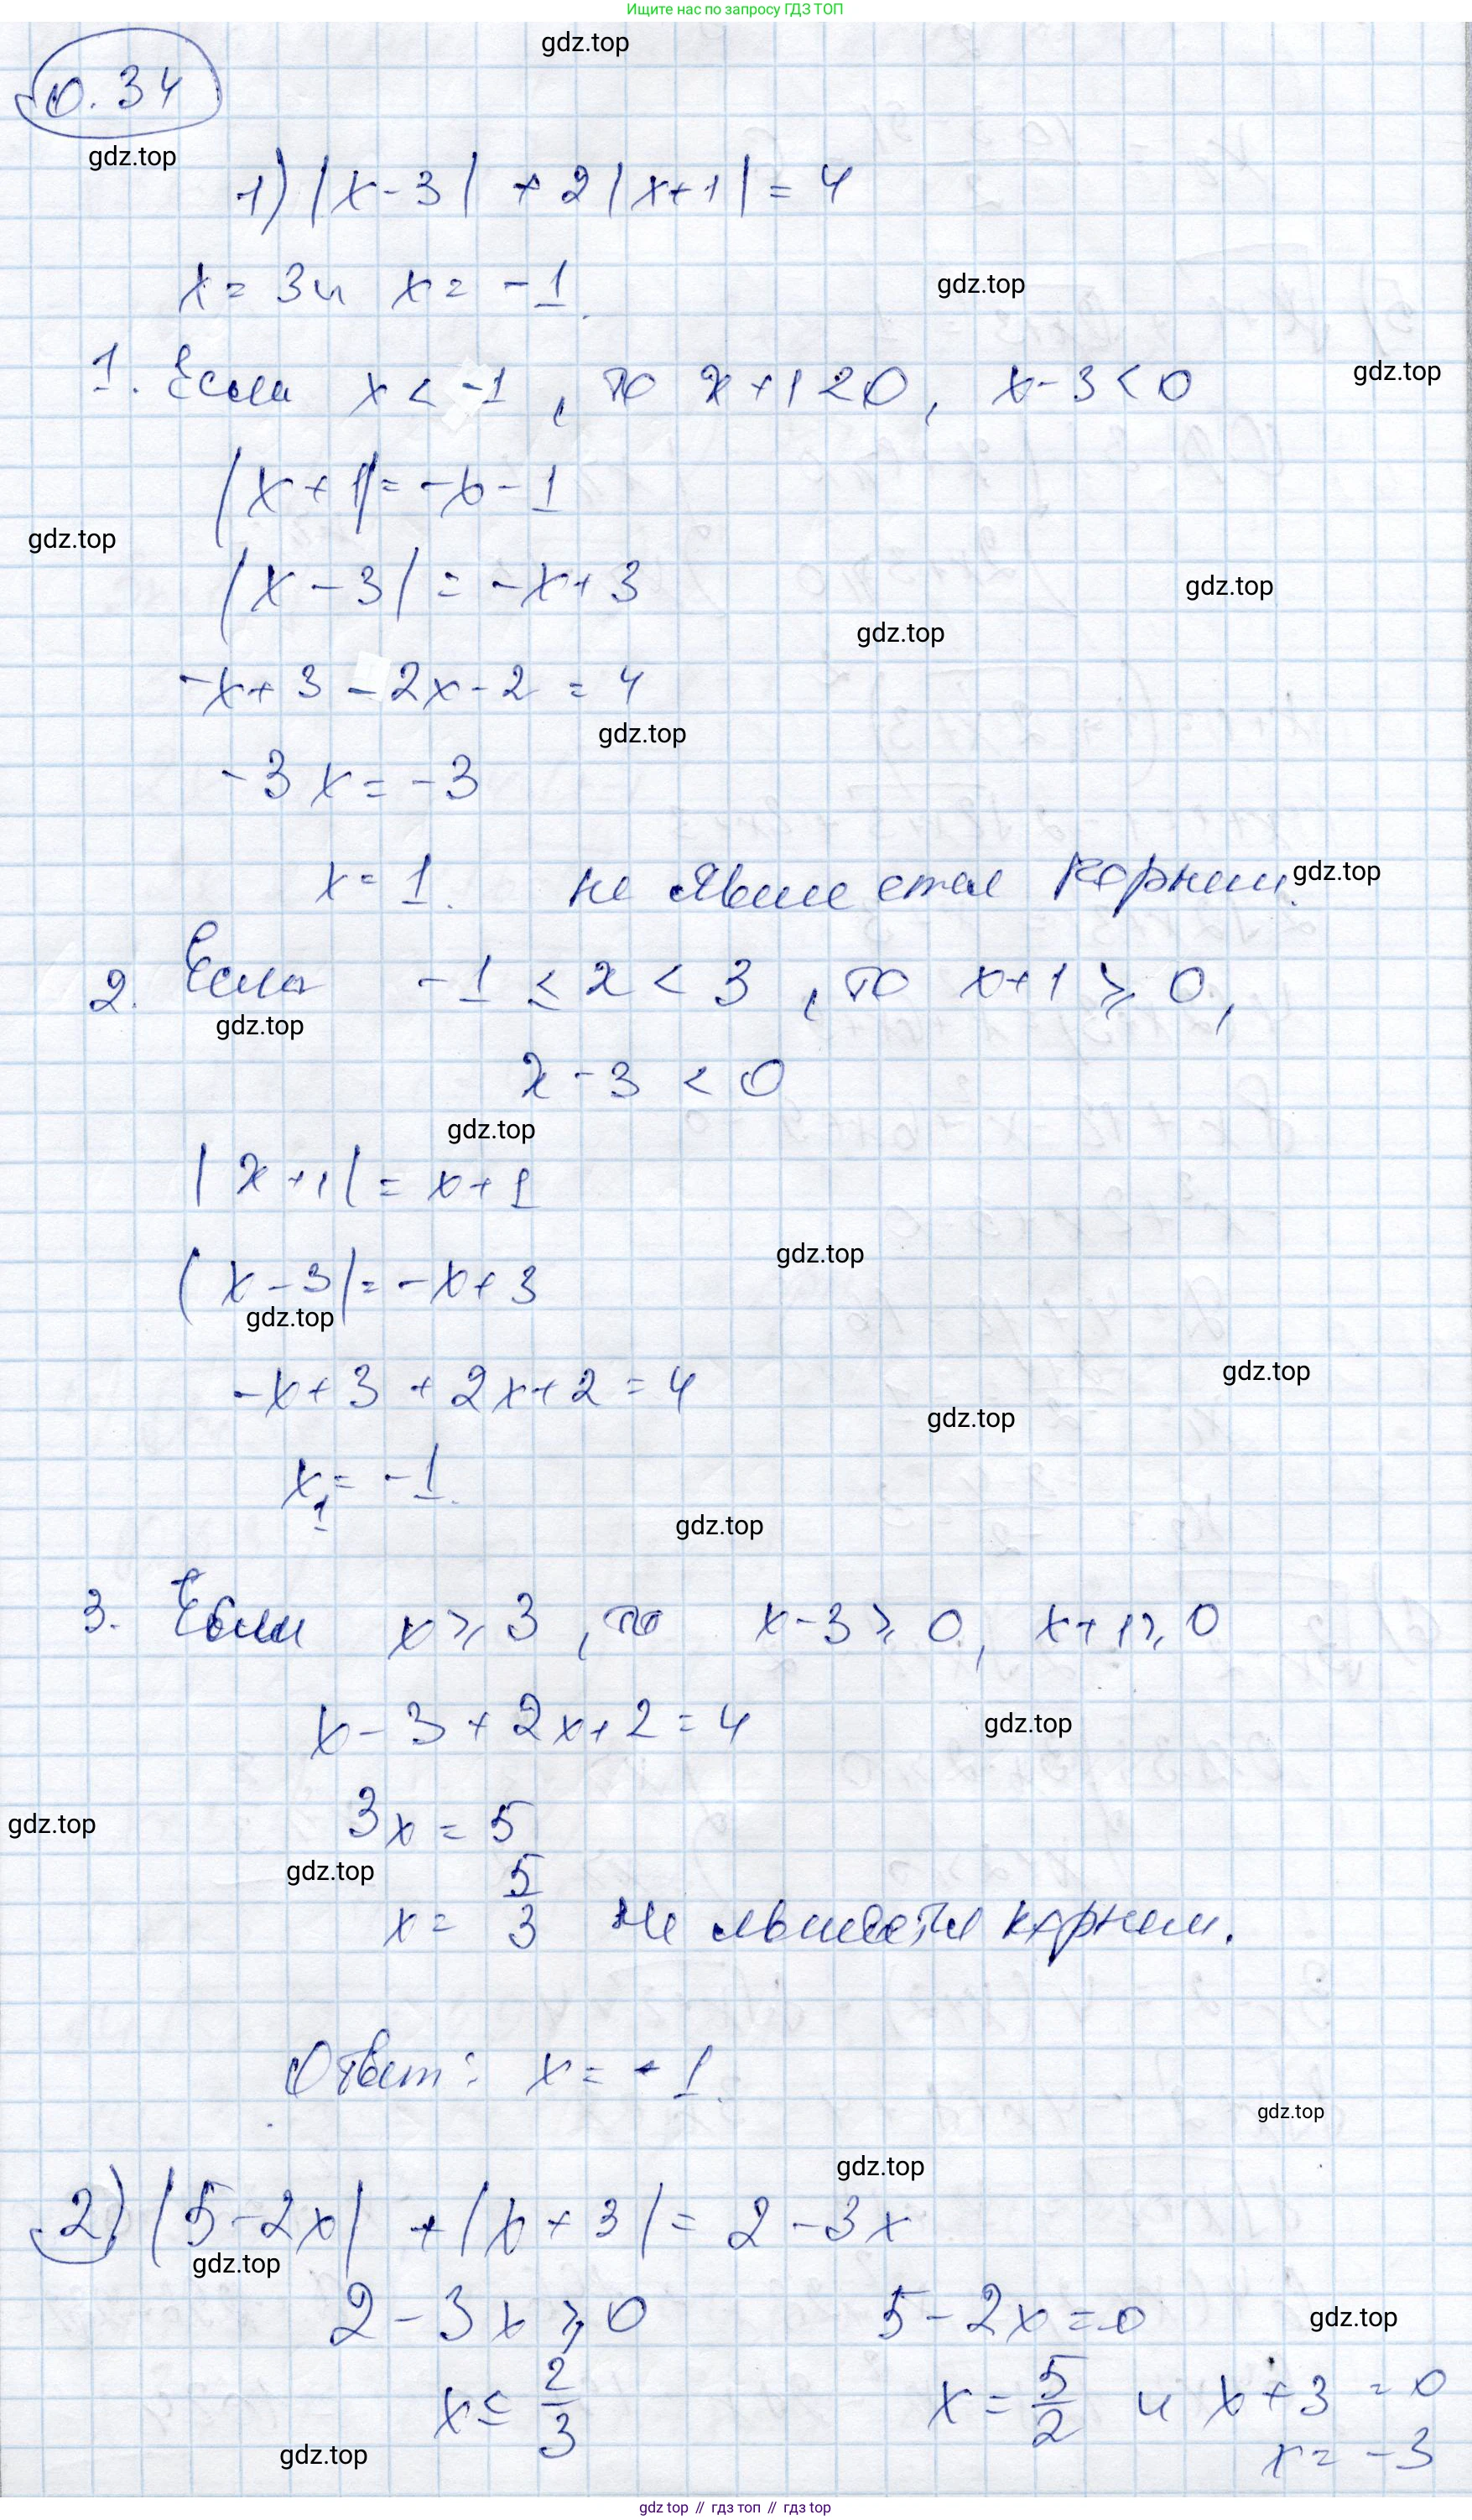 Ищите нас по запросу ГДЗ ТОП
gdz.top
0.34
gdz.top
1) |x-3| + 2|x+1| = 4
x = 3 и x = -1.
gdz.top
1. Если x < -1, то x+1<0, x-3<0
gdz.top
|x+1| = -x-1
gdz.top
|x-3| = -x+3
gdz.top
gdz.top
-x+3-2x-2 = 4
gdz.top
-3x = -3
x = 1. не является корнем.
gdz.top
2. Если -1 ≤ x < 3, то x+1 ≥ 0,
gdz.top
x-3 < 0
gdz.top
|x+1| = x+1
gdz.top
|x-3| = -x+3
gdz.top
gdz.top
-x+3+2x+2 = 4
gdz.top
x₁ = -1.
gdz.top
3. Если x ≥ 3, то x-3 ≥ 0, x+1 ≥ 0
x-3+2x+2 = 4
gdz.top
3x = 5
gdz.top
gdz.top
x = 5/3 не является корнем.
Ответ: x = -1.
gdz.top
gdz.top
2) |5-2x| + |x+3| = 2-3x
gdz.top
2-3x ≥ 0 5-2x = 0
gdz.top
x ≤ 2/3 x = 5/2 и x+3 = 0
x = -3
gdz.top
gdz top // гдз топ // gdz top